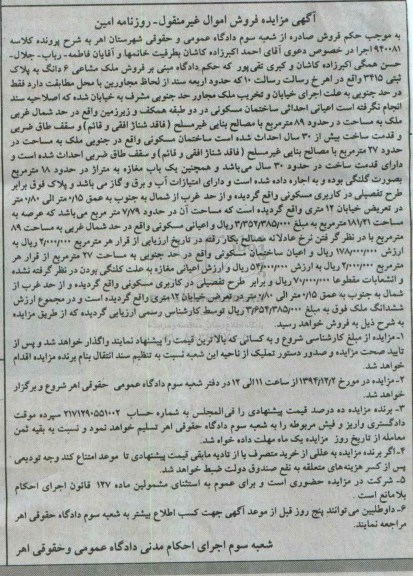 آگهی مزایده فروش اموال غیرمنقول- روزنامه امین
به موجب حکم فروش صادره از شعبه سوم دادگاه عمومی و حقوقی شهرستان اهر به شرح پرونده کلاسه
۹۴۰۰۸۱ اجرا در خصوص دعوی آقای احمد اکبرزاده کاشان بطرفیت خانمها و آقایان فاطمه- رباب- جلال-
حسن همگی اکبرزاده کاشان و کبری تقی پور که حکم دادگاه مبنی بر فروش ملک مشاعی ۶ دانگ به پلاک
ثبتی ۳۴۱۵ واقع در اهر خ رسالت رسالت ۱۰ که حدود اربعه سند از لحاظ مجاورین با محل مطابقت دارد فقط
در حد جنوبی به علت اجرای خیابان و تخریب ملک مجاور حد جنوبی مشرف به خیابان شده که اصلاحیه سند
انجام نگرفته است اعیانی احداثی ساختمان مسکونی در دو طبقه همکف و زیرزمین واقع در حد شمال غربی
ملک به مساحت در حدود ۸۹ مترمربع با مصالح بنایی غیرمسلح (فاقد شناژ افقی و قائم) و سقف طاق ضربی
و قدمت ساخت بیش از ۳۰ سال احداث شده است ساختمان مسکونی واقع در جنوبی ملک به مساحت در
حدود ۲۷ مترمربع با مصالح بنایی غیرمسلح (فاقد شناژ افقی و قائم) و سقف طاق ضربی احداث شده است و
دارای قدمت ساخت در حدود ۳۰ سال می‌باشد و همچنین یک باب مغازه به متراژ در حدود ۱۸ مترمربع
بصورت کلنگی بوده و به اجاره داده شده است و دارای امتیازات آب و برق و گاز می باشد و پلاک فوق برابر
طرح تفصیلی در کاربری مسکونی واقع گردیده و از حد غرب از شمال به جنوب به عمق ۰/۱۵ متر الی ۰/۸۰ متر
در تعریض خیابان ۱۲ متری واقع گردیده است که مساحت آن در حدود ۷/۷۹ متر مربع می‌باشد که عرصه به
مساحت ۱۸۱/۲۱ مترمربع به مبلغ ۳/۳۵۲/۳۸۵/۰۰۰ ریال و اعیانی مسکونی واقع در حد شمال غربی به مساحت ۸۹
مترمربع با در نظر گرفتن نرخ عادلانه مصالح بکار رفته در تاریخ ارزیابی از قرار هر مترمربع ۲/۰۰۰/۰۰۰ ریال به
ارزش ۱۷۸/۰۰۰/۰۰۰ ریال و اعیان ساختمان مسکونی واقع در حد جنوبی به مساحت ۲۷ مترمربع از قرار هر
مترمربع ۲/۰۰۰/۰۰۰ ریال به ارزش ۵۲/۰۰۰/۰۰۰ ریال و ارزش اعیانی مغازه به علت کلنگی بودن در نظر گرفته نشده
و انشعابات مقطوعا ۷۰/۰۰۰/۰۰۰ ریال و برابر طرح تفصیلی در کاربری مسکونی واقع گردیده و از حد غرب از
شمال به جنوب به عمق ۰/۱۵ متر الی ۰/۸۰ متر در تعریض خیابان ۱۲ متری واقع گردیده است و در مجموع ارزش
ششدانگ ملک فوق به مبلغ ۳/۶۵۲/۳۸۵/۰۰۰ ریال توسط کارشناس رسمی ارزیابی گردیده که از طریق مزایده
به شرح ذیل به فروش خواهد رسید.
۱-مزایده از مبلغ کارشناسی شروع و به کسانی که بالاترین قیمت را پیشنهاد نمایند واگذار خواهد شد و پس از
تایید صحت مزایده و صدور دستور تملیک از ناحیه این شعبه نسبت به تنظیم سند انتقال بنام برنده مزایده اقدام
خواهد شد.
۲-مزایده در مورخ ۱۳۹۴/۱۲/۲ از ساعت ۱۱ الی ۱۲ در دفتر شعبه سوم دادگاه عمومی حقوقی اهر شروع و برگزار
خواهد شد.
۳- برنده مزایده ده درصد قیمت پیشنهادی را فی‌المجلس به شماره حساب ۲۱۷۱۲۹۰۵۵۱۰۰۲ سپرده موقت
دادگستری واریز و فیش مربوطه را به شعبه سوم دادگاه حقوقی اهر تسلیم خواهد نمود و نسبت به بقیه ثمن
معامله از تاریخ روز مزایده یک ماه مهلت داده خواه شد.
۴-اگر برنده مزایده به عللی از خرید منصرف یا از تادیه مابقی قیمت پیشنهادی تا موعد امتناع کند وجه تودیعی
پس از کسر هزینه‌های متعلقه به نفع صندوق دولت ضبط خواهد شد.
۵- شرکت در مزایده حضوری است و برای عموم به استثنای مشمولین ماده ۱۲۷ قانون اجرای احکام
بلامانع است.
۶-داوطلبین می‌توانند پنج روز قبل از موعد آگهی جهت کسب اطلاع بیشتر به شعبه سوم دادگاه حقوقی اهر
مراجعه نمایند.
شعبه سوم اجرای احکام مدنی دادگاه عمومی وحقوقی اهر